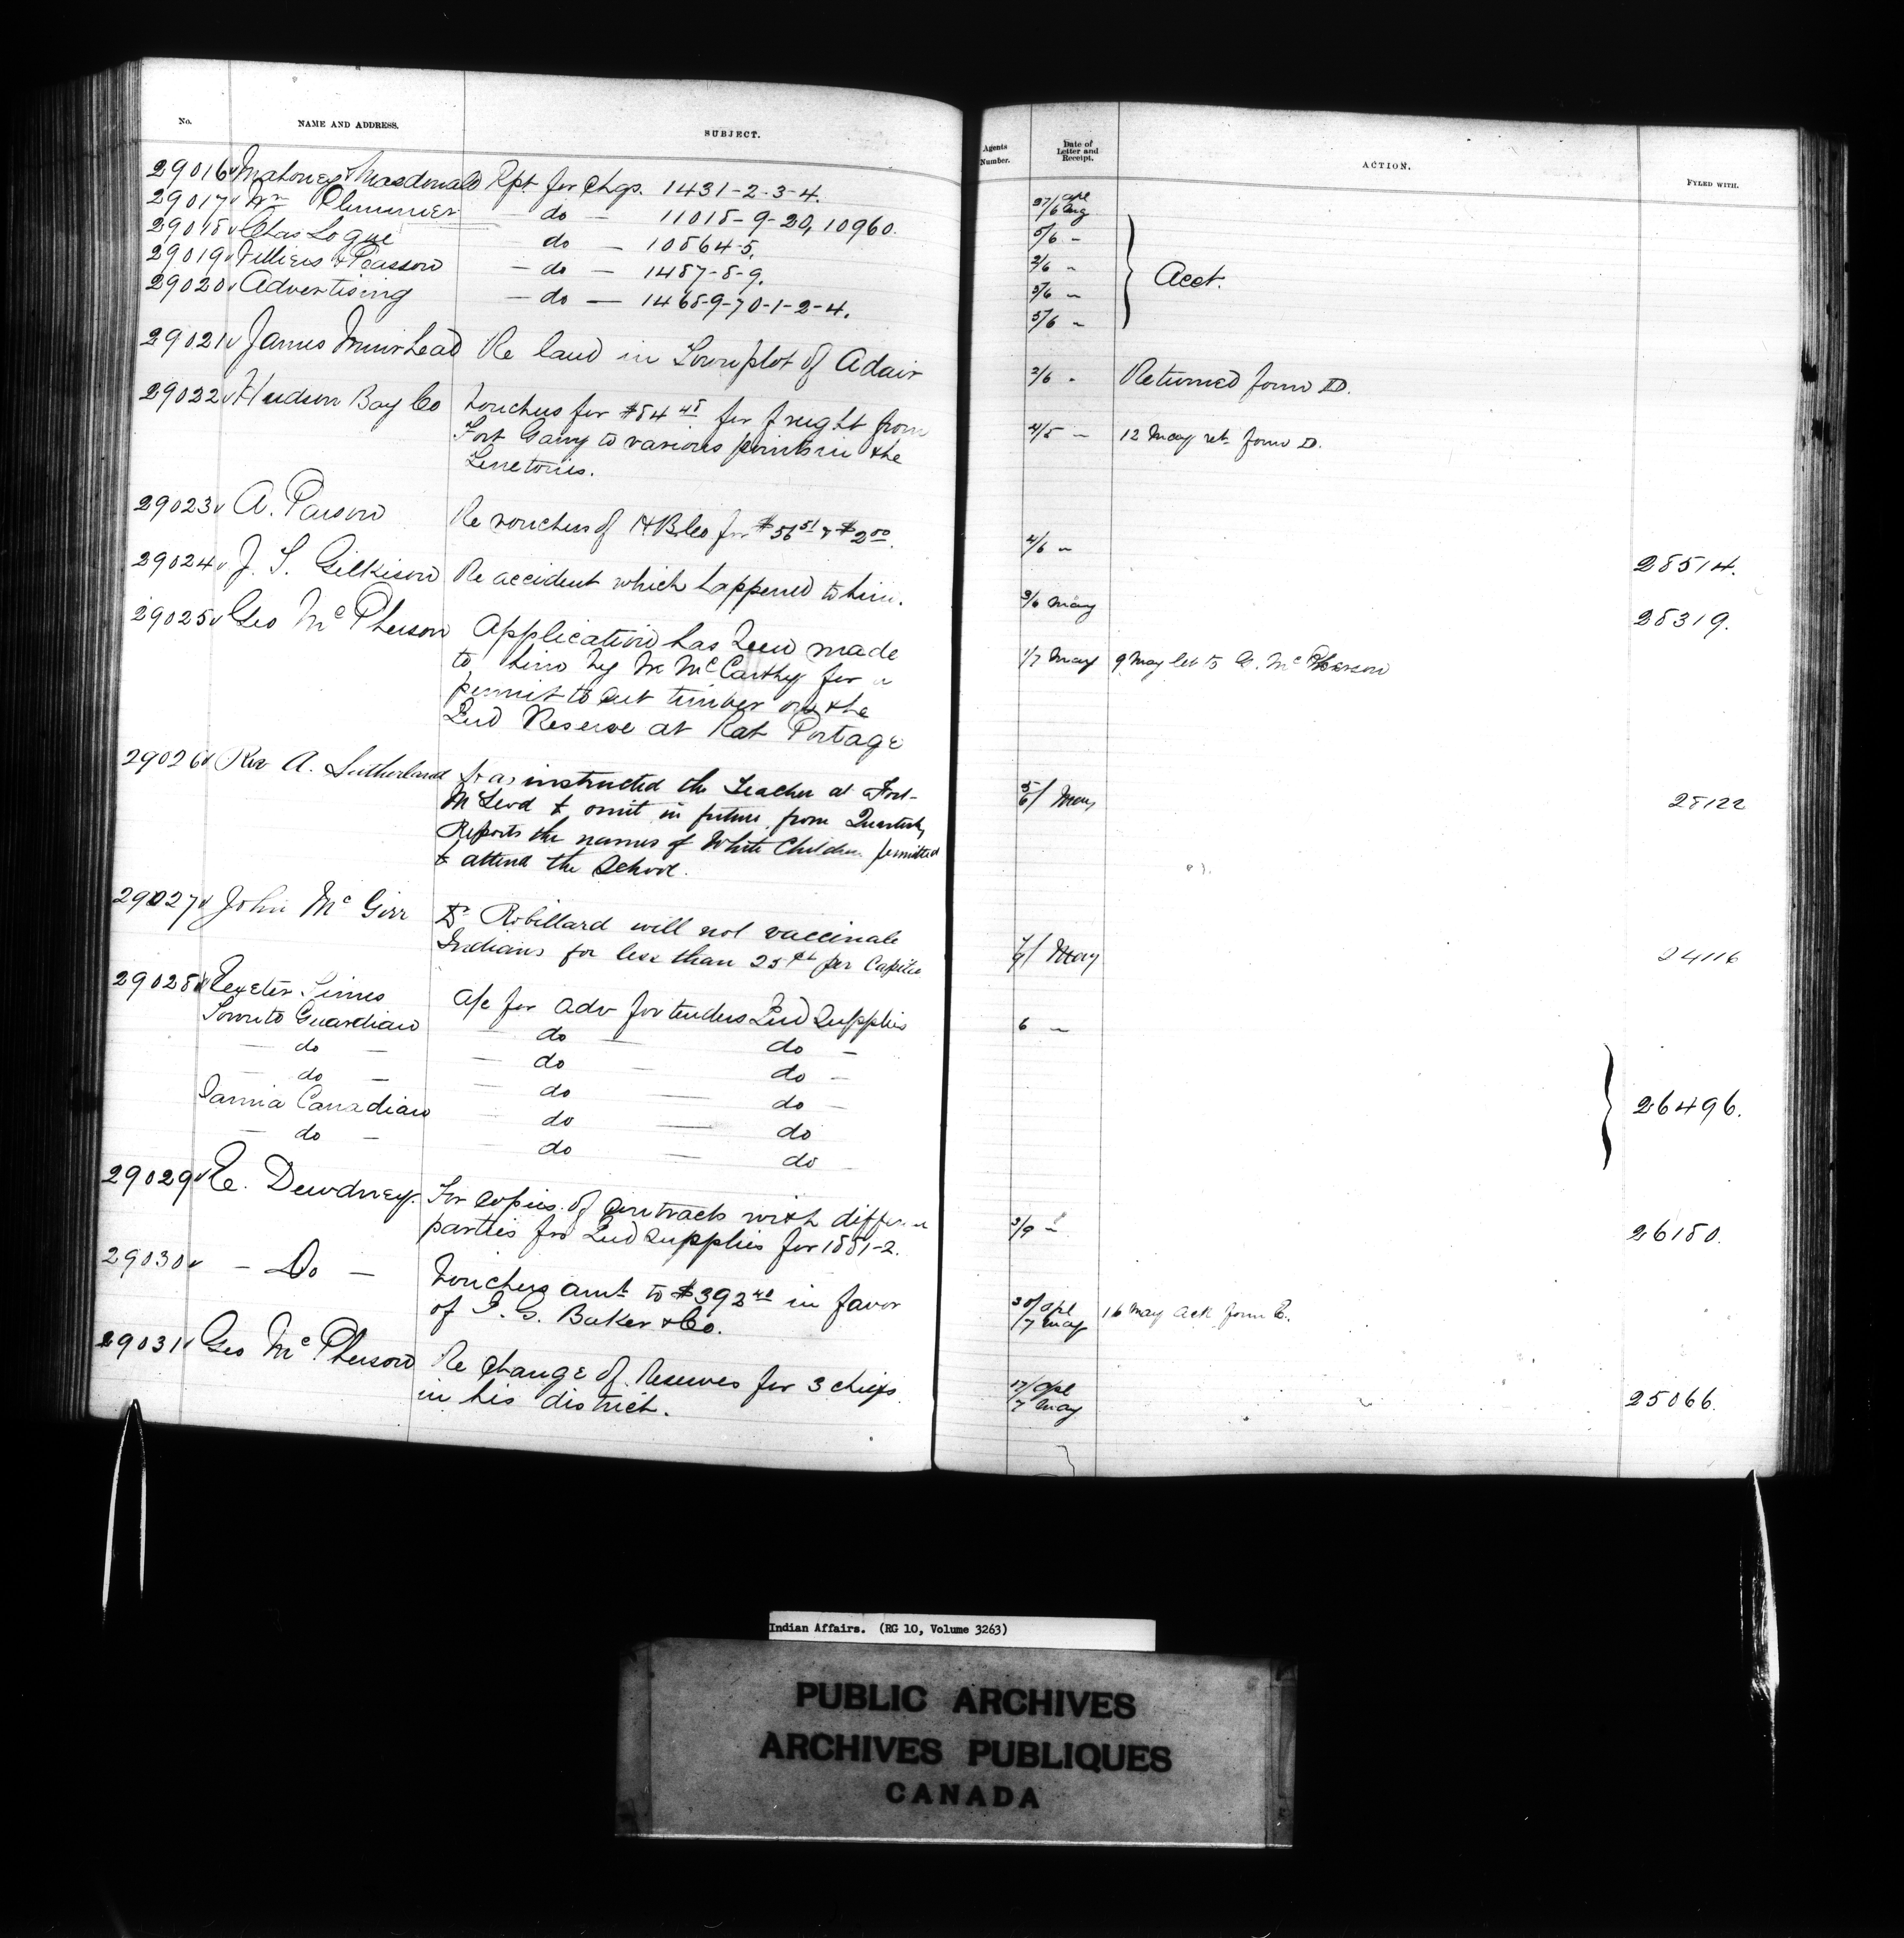 No. NAME AND ADDRESS. SUBJECT.
29016 Mahoney & Macdonald Rpt for Chqs. 1431-2-3-4.
29017 Wm Plummer - do - 11018-9-20, 10960.
29018 Chas Logue do - 10864-5.
29019 - do - 1487-8-9.
29020 Advertising - do - 1468-9-70-1-2-4.
29021 James Muirhead Re land in Townplot of Adair
29022 Hudson Bay Co Vouchers for $84 45 for freight from
Fort Garry to various points in the
Territories.
29023 A. Parson Re vouchers of H B Co for $56 51 & $2 00.
29024 J. T. Gilkison Re accident which happened to him.
29025 Geo Mc Pherson Application has been made
to him by Mr McCarthy for a
permit to cut timber on the
Ind Reserve at Rat Portage
29026 Rev A. Sutherland Has instructed the Teacher at Fort
McLeod to omit in future from Quarterly
Reports the names of White Children permitted
to attend the School.
29027 John Mc Girr Dr Robillard will not vaccinate
Indians for less than 25 ct per Capita
29028 Exeter Times a/c for adv for tenders Ind Supplies
Toronto Guardian - do - do -
- do - - do - do -
- do - - do - do -
Sarnia Canadian - do - do
- do - - do - do -
29029 E. Dewdney. For copies of contracts with different
parties for Ind Supplies for 1881-2.
29030 - Do - Vouchers amt to $392 40 in favor
of I. G. Baker & Co.
29031 Geo Mc Pherson Re change of Reserves for 3 chiefs
in his district.
Agents Number. Date of Letter and Receipt. ACTION. FYLED WITH.
27/6 Apl
5/6 -
2/6 -
3/6 - Acct.
5/6 -
2/6 - Returned form D.
4/5 - 12 May ret. form D.
4/6 - 28514.
3/6 May 28319.
1/7 May 9 May let to G. Mc Pherson
5/6 May 28122
7/9 May 24116
6 -
26496.
3/9 - 26180.
30/Apl
/7 May 16 May Ack form E.
17/Apl
/7 May 25066.
Indian Affairs. (RG 10, Volume 3263)
PUBLIC ARCHIVES
ARCHIVES PUBLIQUES
CANADA